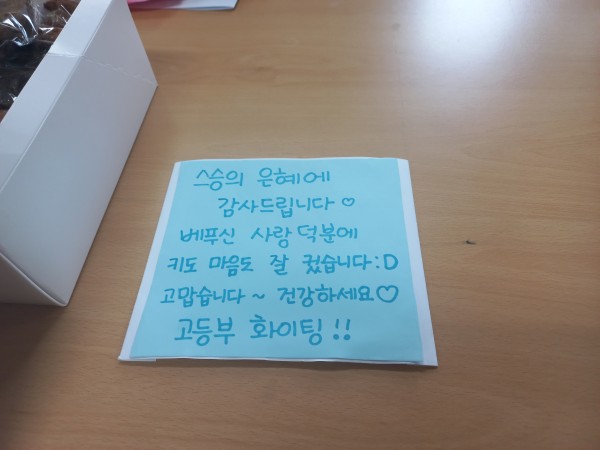 스승의 은혜에
감사드립니다 ♡
베푸신 사랑 덕분에
키도 마음도 잘 컸습니다 :D
고맙습니다 ~ 건강하세요♡
고등부 화이팅!!